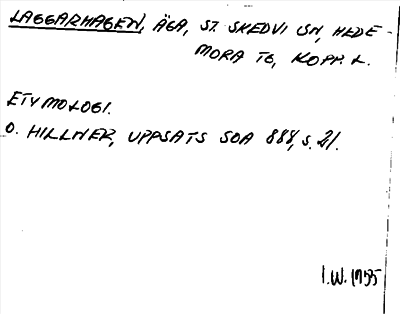 LAGGARHAGEN, ÄGA, ST. SKEDVI SN, HEDE-
MORA TG, KOPP. L.
ETYMOLOGI.
O. HILLNER, UPPSATS SOA 888, S. 21.
I.W. 1955